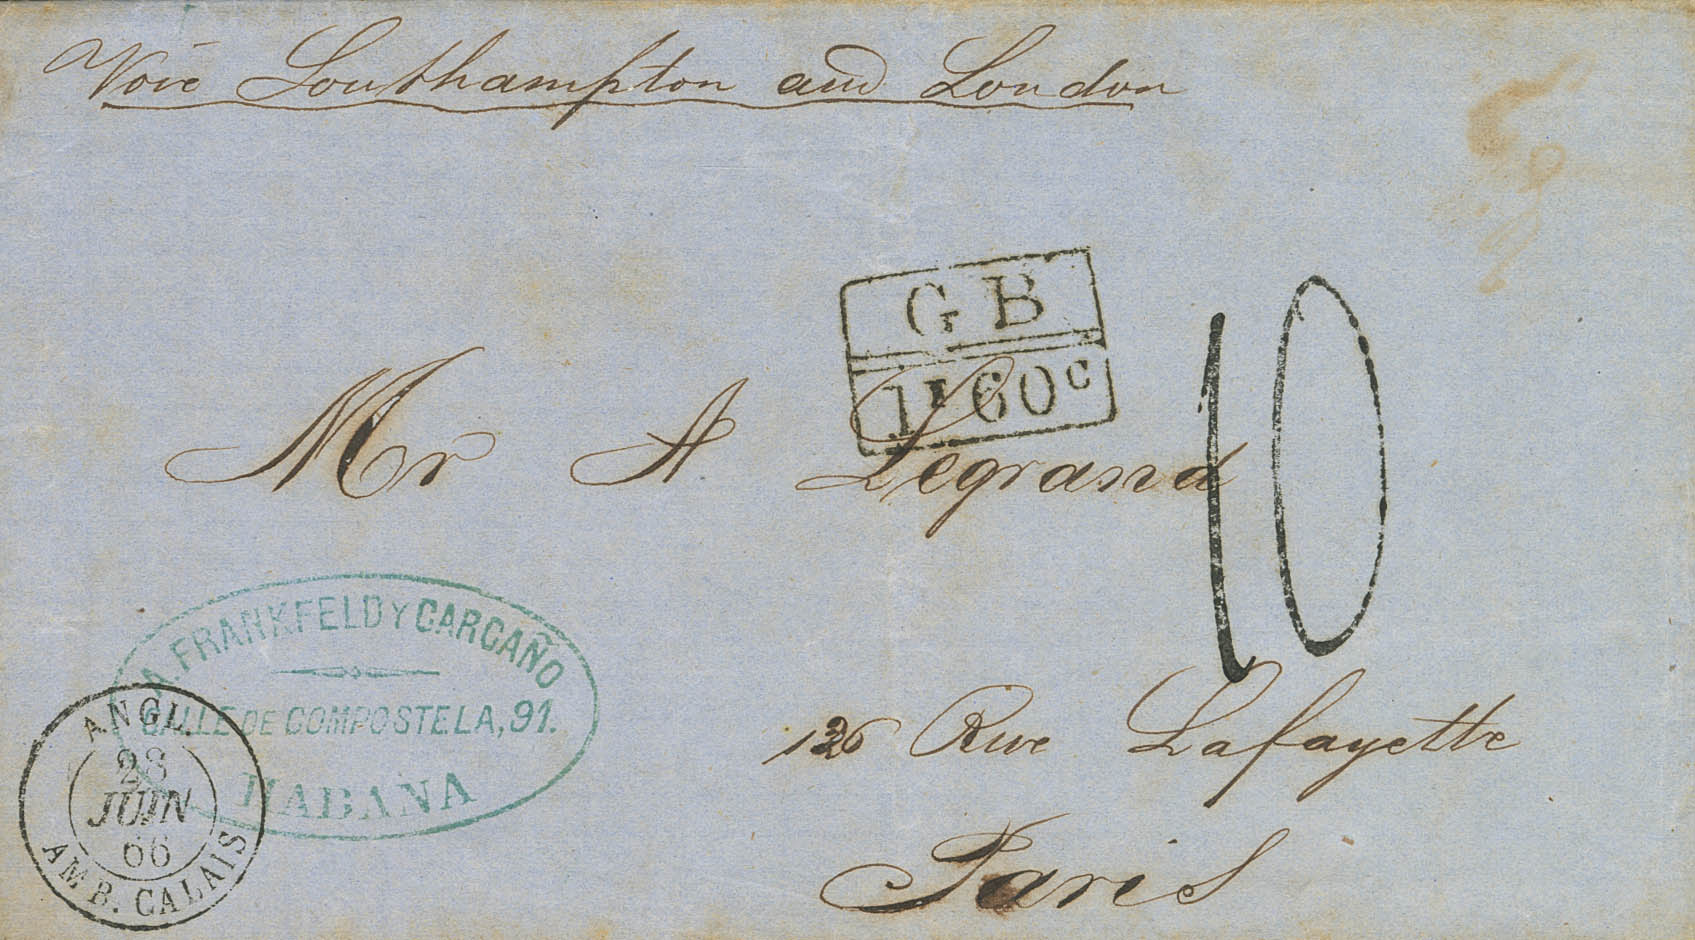 Voie Southampton and London
G B
1F60c
10
Mr A Legrand
A. FRANKFELD Y CARCAÑO
CALLE DE COMPOSTELA, 91.
HABANA
ANGL.
28
JUIN
66
AMB. CALAIS
126 Rue Lafayette
Paris